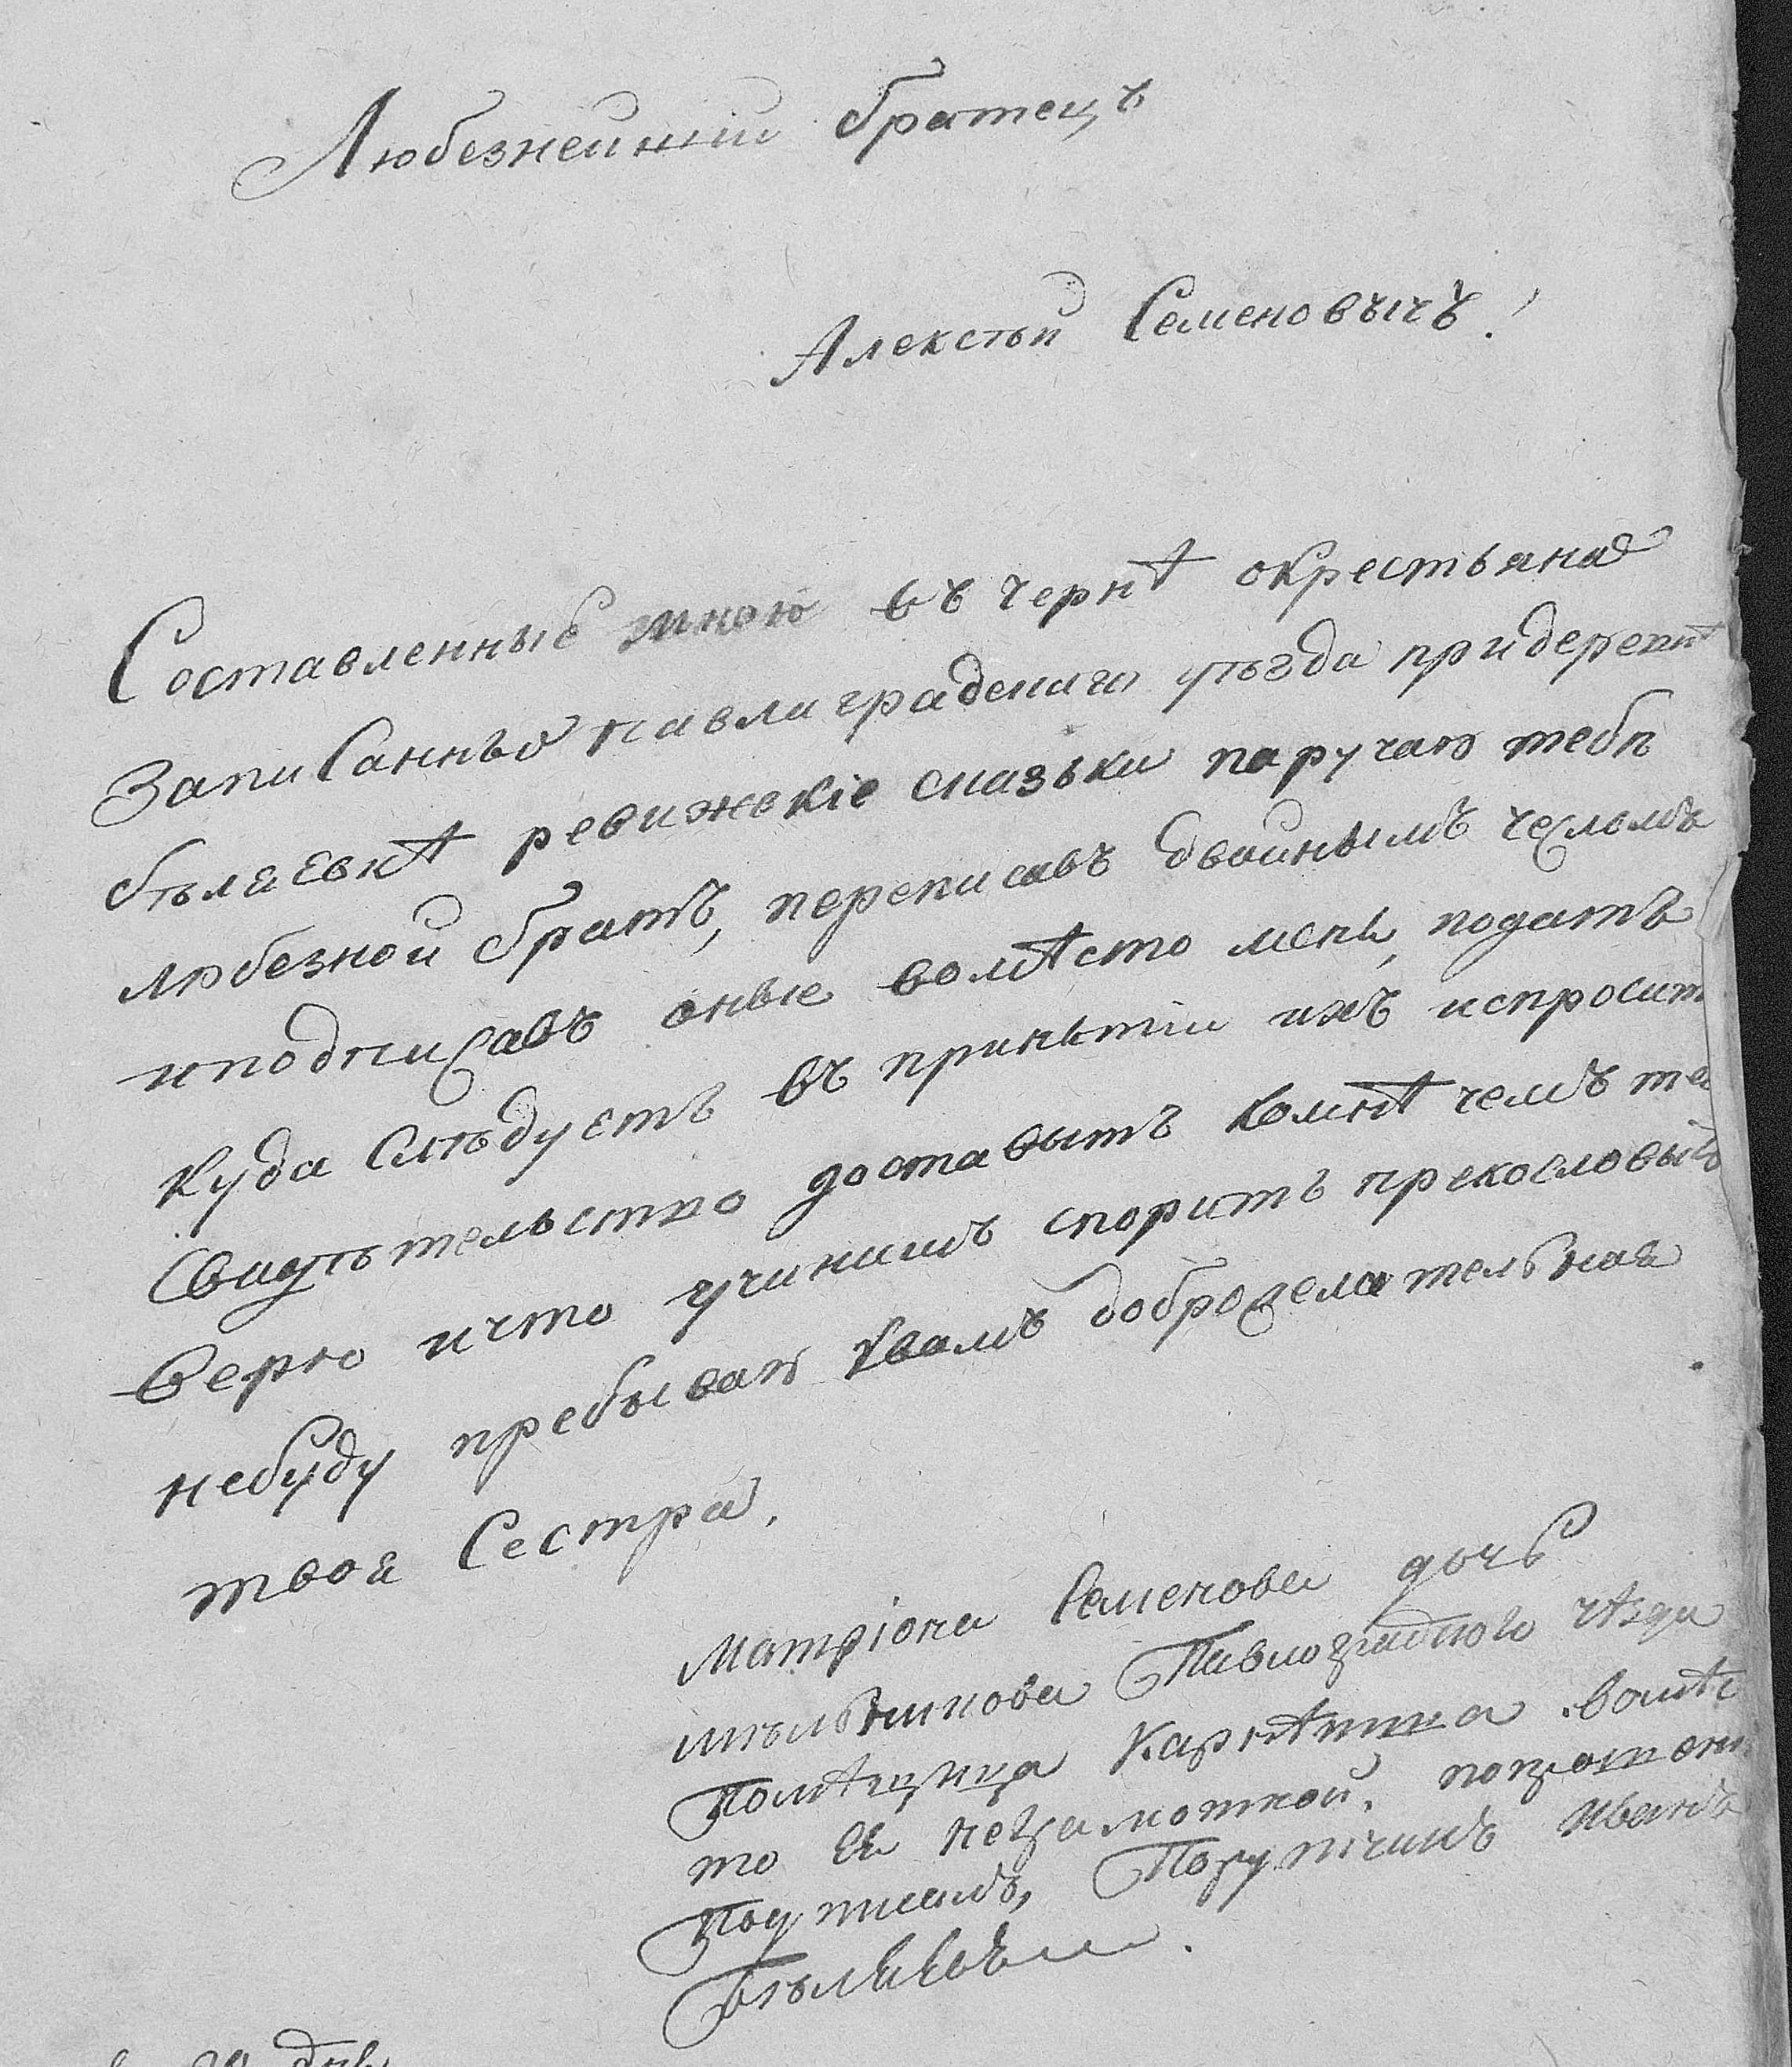 Любезнейшии братецъ
Алексѣй Семеновычъ!
Составленные мною въ чернѣ окрестьянаѣ
записанныѣ павлаградскаго уѣзда придеревнѣ
бѣляевкѣ ревижскіе сказьки паручаю тебѣ
любезной братъ, переписавъ двойнымъ чесломъ
иподписавъ оные вомѣсто мень, подать
куда слѣдуетъ въ приньтіи ихъ испросит
свидѣтельство доставыть комнѣ чемъ те
верю ичто учинишъ спорить прекословыть
небуду пребываю квамъ доброжелательная
твоя Сестра.
Матріона Семенова дочь
мѣльникова Павлоградского уѣзда
Помѣщица Карнѣтша вомѣс
то Ея неграмотной, попрошени
Подписалъ, Порутчикъ Иванъ
Бѣляевъ.
20 дня